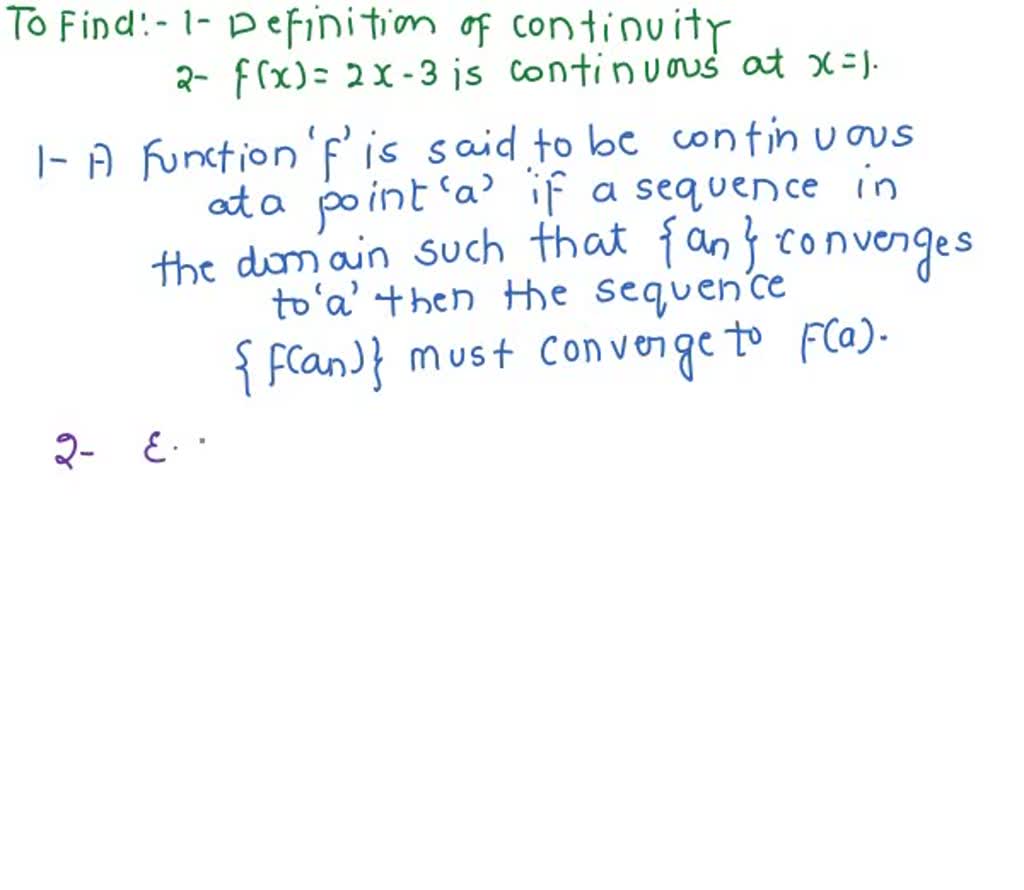 To Find:- 1- Definition of continuity
2- f(x) = 2x - 3 is continuous at x=1.
1- A function 'f' is said to be continuous
at a point 'a' if a sequence in
the domain such that {an} converges
to 'a' then the sequence
{f(an)} must converge to F(a).
2- ε.